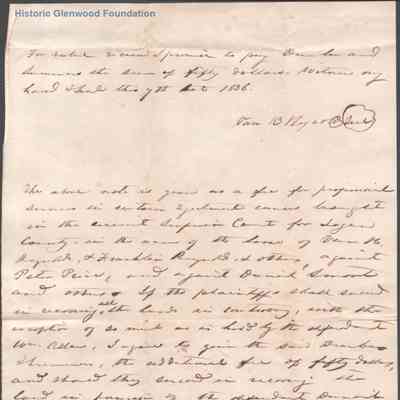 Historic Glenwood Foundation
For value received I promise to pay Dunbar and
Summers the sum of fifty dollars. Witness my
hand & seal this 7th Oct 1836.
Van B Reynolds Seal
The above note is given as a fee for professional
services in certain Ejectment causes brought
in the circuit Superior Court for Logan
County in the name of the heirs of
Reynolds, & Franklin Reynolds & others against
Peter Price, and against Daniel
and others. If the plaintiffs shall succeed
in recovering all the lands in controversy, with the
exception of so much as is held by the defendant
Wm. I agree to give the said Dunbar
& Summers, the additional fee of fifty dollars,
and should they succeed in recovering the
land in possession of the defendant Daniel